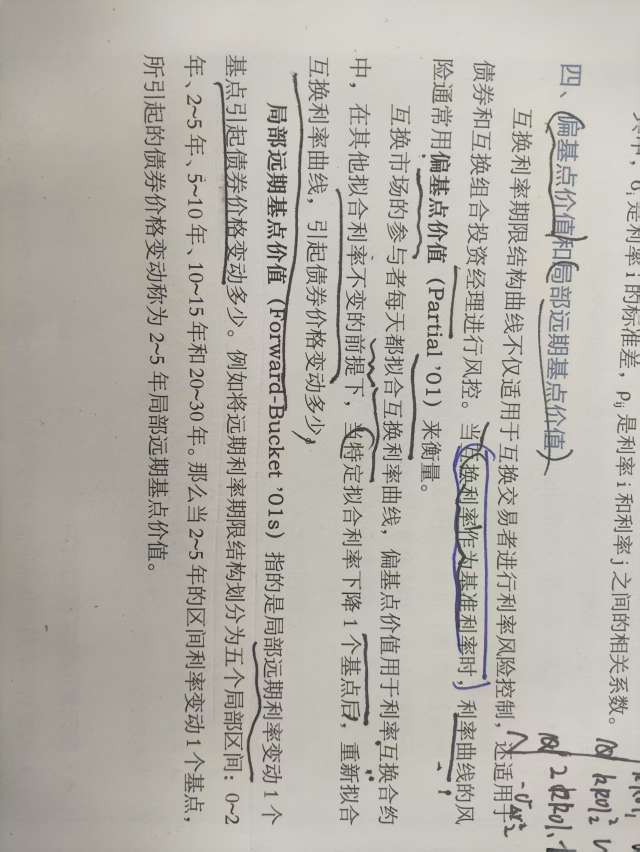 其中，σᵢ是利率 i 的标准差，ρᵢⱼ是利率 i 和利率 j 之间的相关系数。
四、偏基点价值和局部远期基点价值
互换利率期限结构曲线不仅适用于互换交易者进行利率风险控制，还适用于
债券和互换组合投资经理进行风控。当互换利率作为基准利率时，利率曲线的风
险通常用偏基点价值（Partial '01）来衡量。
互换市场的参与者每天都拟合互换利率曲线，偏基点价值用于利率互换合约
中，在其他拟合利率不变的前提下，当特定拟合利率下降 1 个基点后，重新拟合
互换利率曲线，引起债券价格变动多少。
局部远期基点价值（Forward-Bucket '01s）指的是局部远期利率变动 1 个
基点引起债券价格变动多少。例如将远期利率期限结构划分为五个局部区间：0~2
年、2~5 年、5~10 年、10~15 年和 20~30 年。那么当 2~5 年的区间利率变动 1 个基点，
所引起的债券价格变动称为 2~5 年局部远期基点价值。